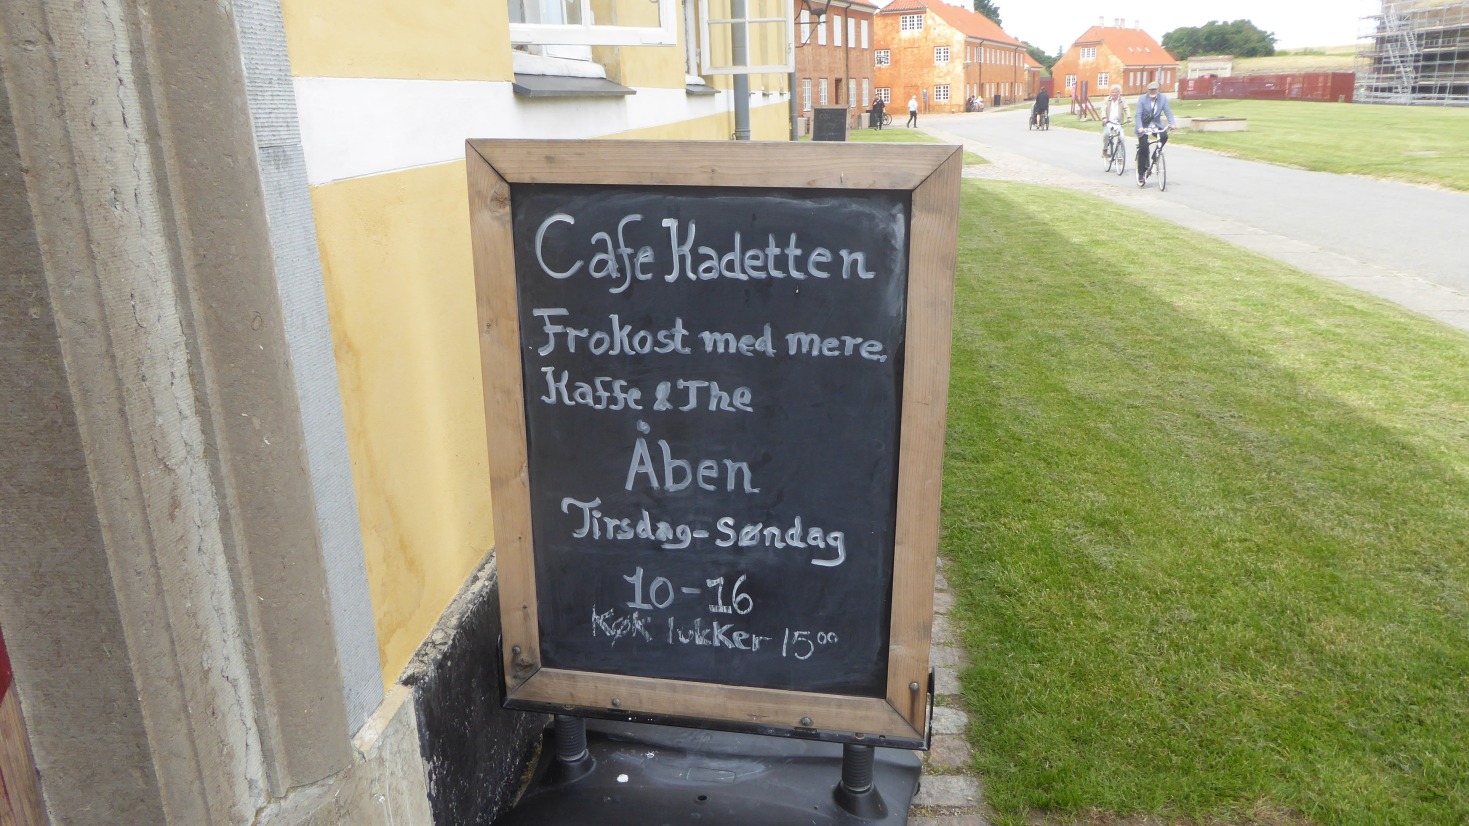 Cafe Kadetten
Frokost med mere.
Kaffe & The
Åben
Tirsdag-Søndag
10-16
Køk lukker 15⁰⁰